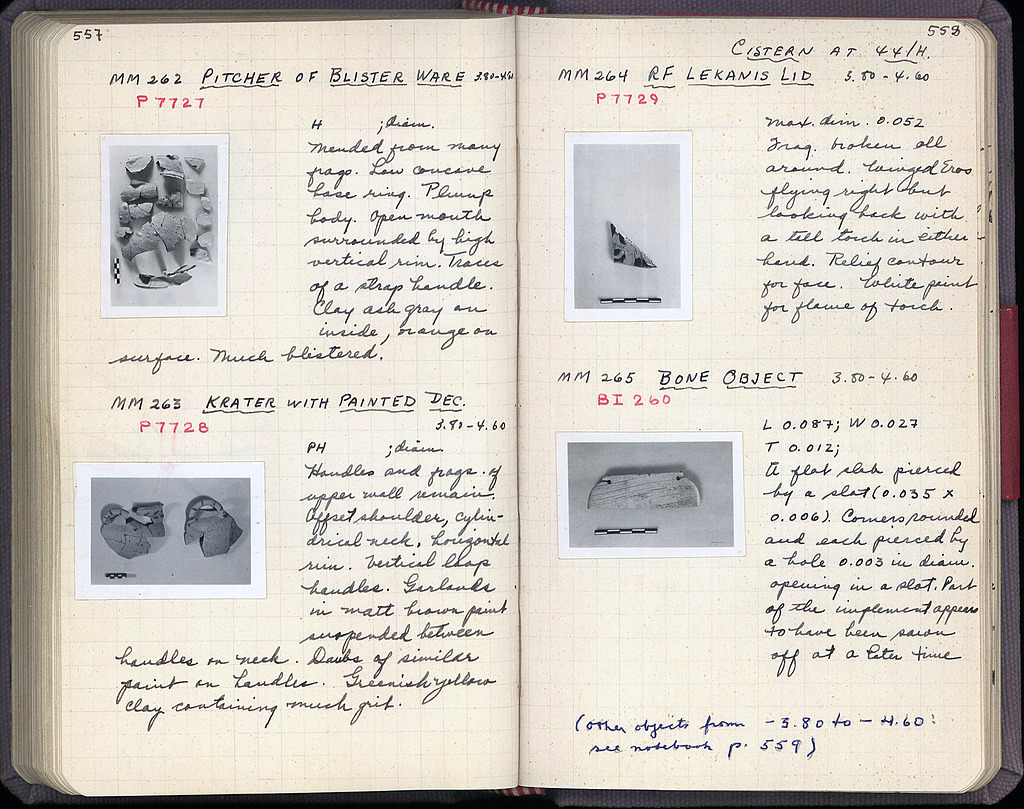 557
MM 262 PITCHER OF BLISTER WARE 3.80-4.60
P 7727
H ; diam.
Mended from many
frags. Low concave
base ring. Plump
body. Open mouth
surrounded by high
vertical rim. Traces
of a strap handle.
Clay ash gray on
inside, orange on
surface. Much blistered.
MM 263 KRATER WITH PAINTED DEC.
3.80-4.60
P 7728
PH ; diam.
Handles and frags. of
upper wall remain.
Offset shoulder, cylin-
drical neck, horizontal
rim. Vertical loop
handles. Garlands
in matt brown paint
suspended between
handles on neck. Daubs of similar
paint on handles. Greenish yellow
clay containing much grit.
558
CISTERN AT 44/H.
MM 264 RF LEKANIS LID 3.80-4.60
P 7729
Max. dim. 0.052
Frag. broken all
around. Winged Eros
flying right but
looking back with
a tall torch in either
hand. Relief contour
for face. White paint
for flame of torch.
MM 265 BONE OBJECT 3.80-4.60
BI 260
L 0.087; W 0.027
T 0.012;
A flat slab pierced
by a slot (0.035 x
0.006). Corners rounded
and each pierced by
a hole 0.003 in diam.
opening in a slot. Part
of the implement appears
to have been sawn
off at a later time
(other objects from -3.80 to -4.60:
see notebook p. 559)